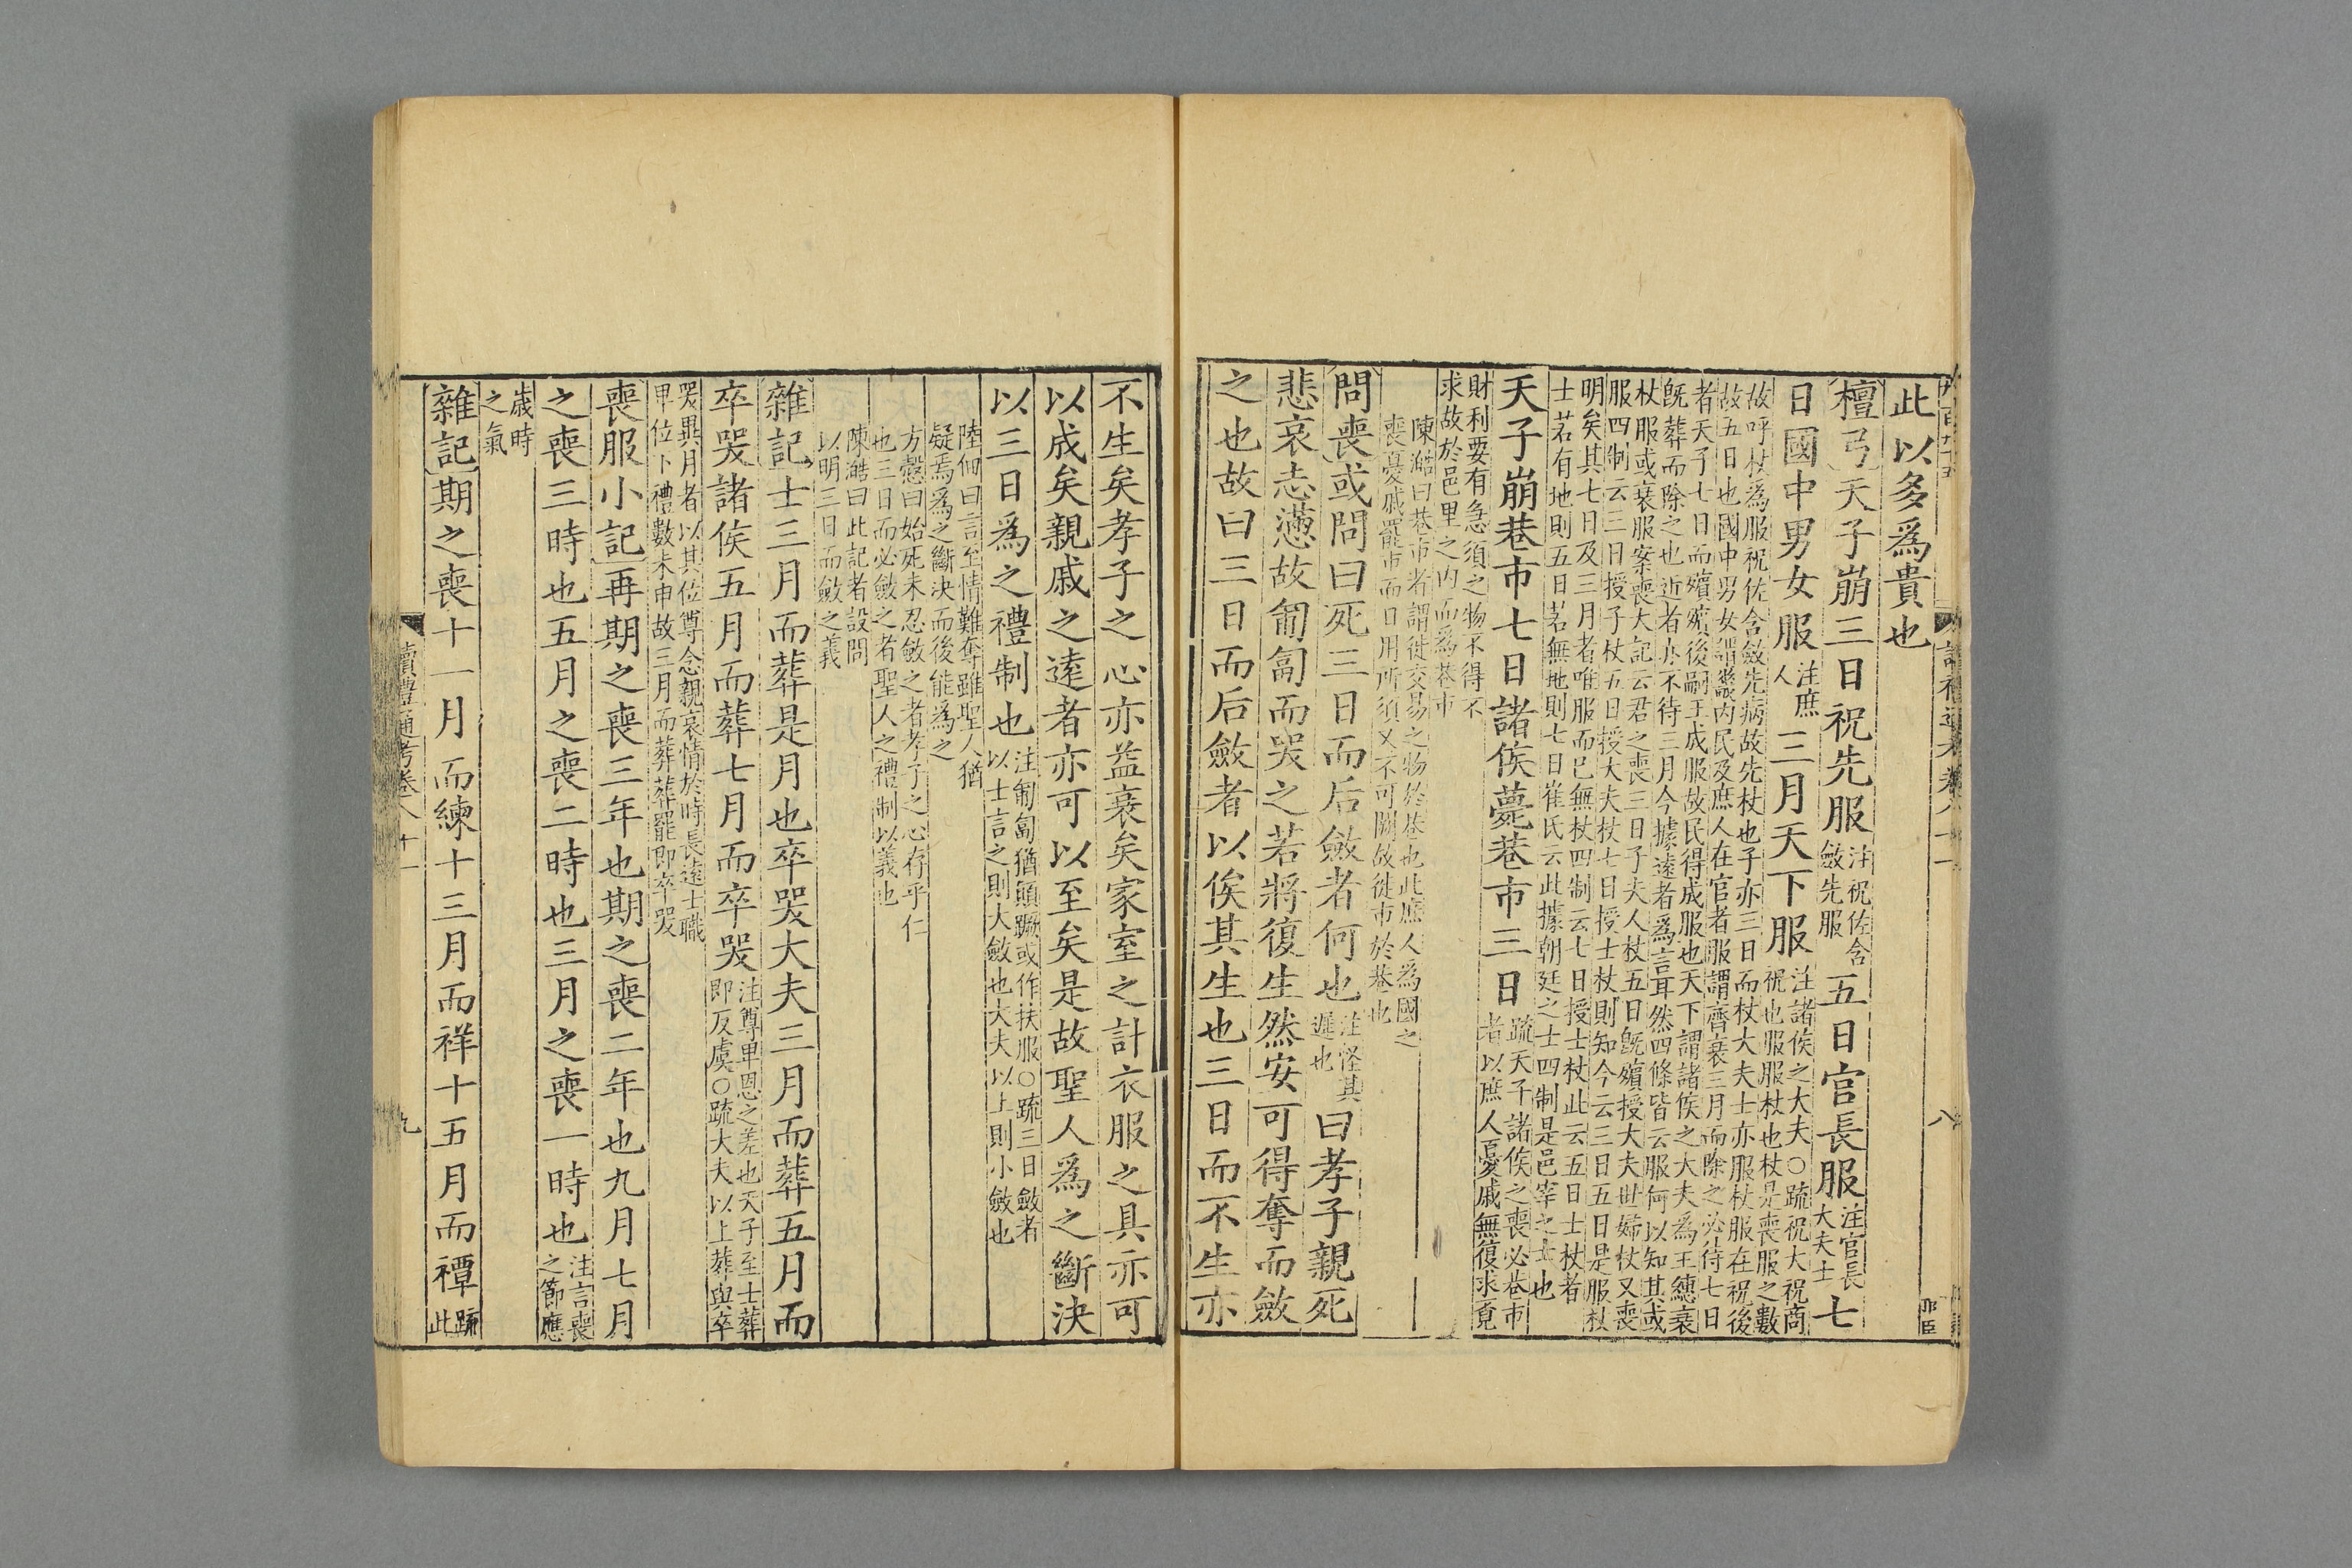 此以多爲貴也
檀弓天子崩三日祝先服注祝佐含
斂先服五日官長服注官長
大夫士七
日國中男女服注庶
人三月天下服注諸侯之大夫○疏祝大祝商
祝也服服杖也杖是喪服之數
故呼杖爲服祝佐含斂先病故先杖也子亦三日而杖大夫士亦服杖服在祝後
故五日也國中男女謂畿內民及庶人在官者服謂齊衰三月而除之必待七日
者天子七日而殯殯後嗣王成服故民得成服也天下謂諸侯之大夫爲王繐衰
旣葬而除之也近者亦不待三月今據遠者爲言耳然四條皆云服何以知其或
杖服或衰服案喪大記云君之喪三日子夫人杖五日旣殯授大夫世婦杖又喪
服四制云三日授子杖五日授大夫杖七日授士杖則知今云三日五日是服杖
明矣其七日及三月者唯服而已無杖四制云七日授士杖此云五日士杖者
士若有地則五日若無地則七日崔氏云此據朝廷之士四制是邑宰之士也
天子崩巷市七日諸侯薨巷市三日疏天子諸侯之喪必巷市
者以庶人憂戚無復求覓
財利要有急須之物不得不
求故於邑里之內而爲巷市
陳澔曰巷市者謂徙交易之物於巷也此庶人爲國之
喪憂戚罷市而日用所須又不可闕故徙市於巷也
問喪或問曰死三日而后斂者何也注怪其
遲也曰孝子親死
悲哀志懣故匍匐而哭之若將復生然安可得奪而斂
之也故曰三日而后斂者以俟其生也三日而不生亦
不生矣孝子之心亦益衰矣家室之計衣服之具亦可
以成矣親戚之遠者亦可以至矣是故聖人爲之斷決
以三日爲之禮制也注匍匐猶顛蹶或作扶服○疏三日斂者
以士言之則大斂也大夫以上則小斂也
陸佃曰言至情難奪雖聖人猶
疑焉爲之斷決而後能爲之
方慤曰始死未忍斂之者孝子之心存乎仁
也三日而必斂之者聖人之禮制以義也
陳澔曰此記者設問
以明三日而斂之義
雜記士三月而葬是月也卒哭大夫三月而葬五月而
卒哭諸侯五月而葬七月而卒哭注尊卑恩之差也天子至士葬
即反虞○疏大夫以上葬與卒
哭異月者以其位尊念親哀情於時長遠士職
卑位下禮數未申故三月而葬葬罷即卒哭
喪服小記再期之喪三年也期之喪二年也九月七月
之喪三時也五月之喪二時也三月之喪一時也注言喪
之節應
歲時
之氣
雜記期之喪十一月而練十三月而祥十五月而禫疏
此
讀禮通考卷八十一
九